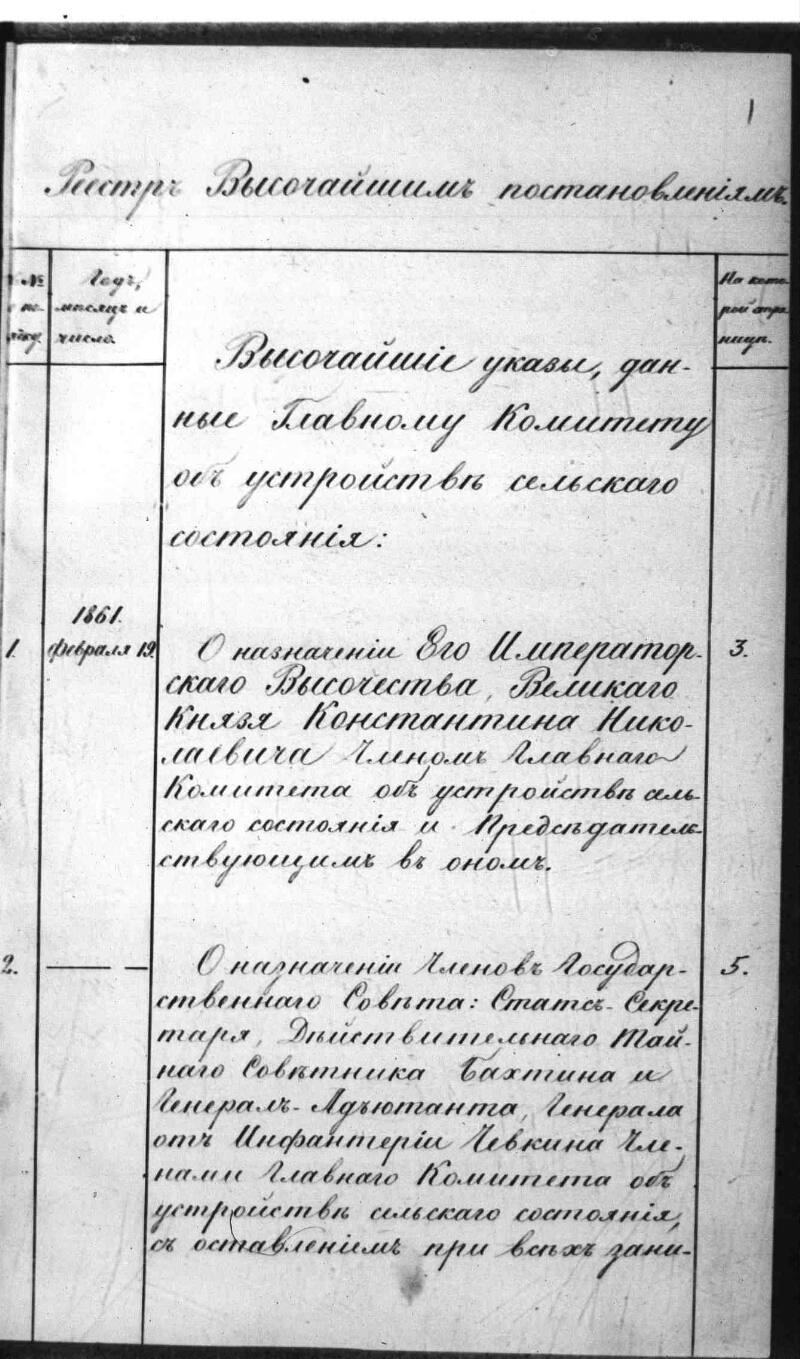 1
Реестръ Высочайшимъ постановленіямъ.
№
по по-
рядку.
Годъ,
мѣсяцъ и
число.
На кото-
рой стра-
ницѣ.
Высочайшіе указы, дан-
ные Главному Комитету
объ устройствѣ сельскаго
состоянія:
1861.
1.
Февраля 19.
О назначеніи Его Император-
скаго Высочества, Великаго
Князя Константина Нико-
лаевича Членомъ Главнаго
Комитета объ устройствѣ сель-
скаго состоянія и Предсѣдатель-
ствующимъ въ ономъ.
3.
2.
— —
О назначеніи Членовъ Государ-
ственнаго Совѣта: Статсъ-Секре-
таря, Дѣйствительнаго Тай-
наго Совѣтника Бахтина и
Генералъ-Адъютанта, Генерала
отъ Инфантеріи Чевкина Чле-
нами Главнаго Комитета объ
устройствѣ сельскаго состоянія,
съ оставленіемъ при всѣхъ зани-
5.